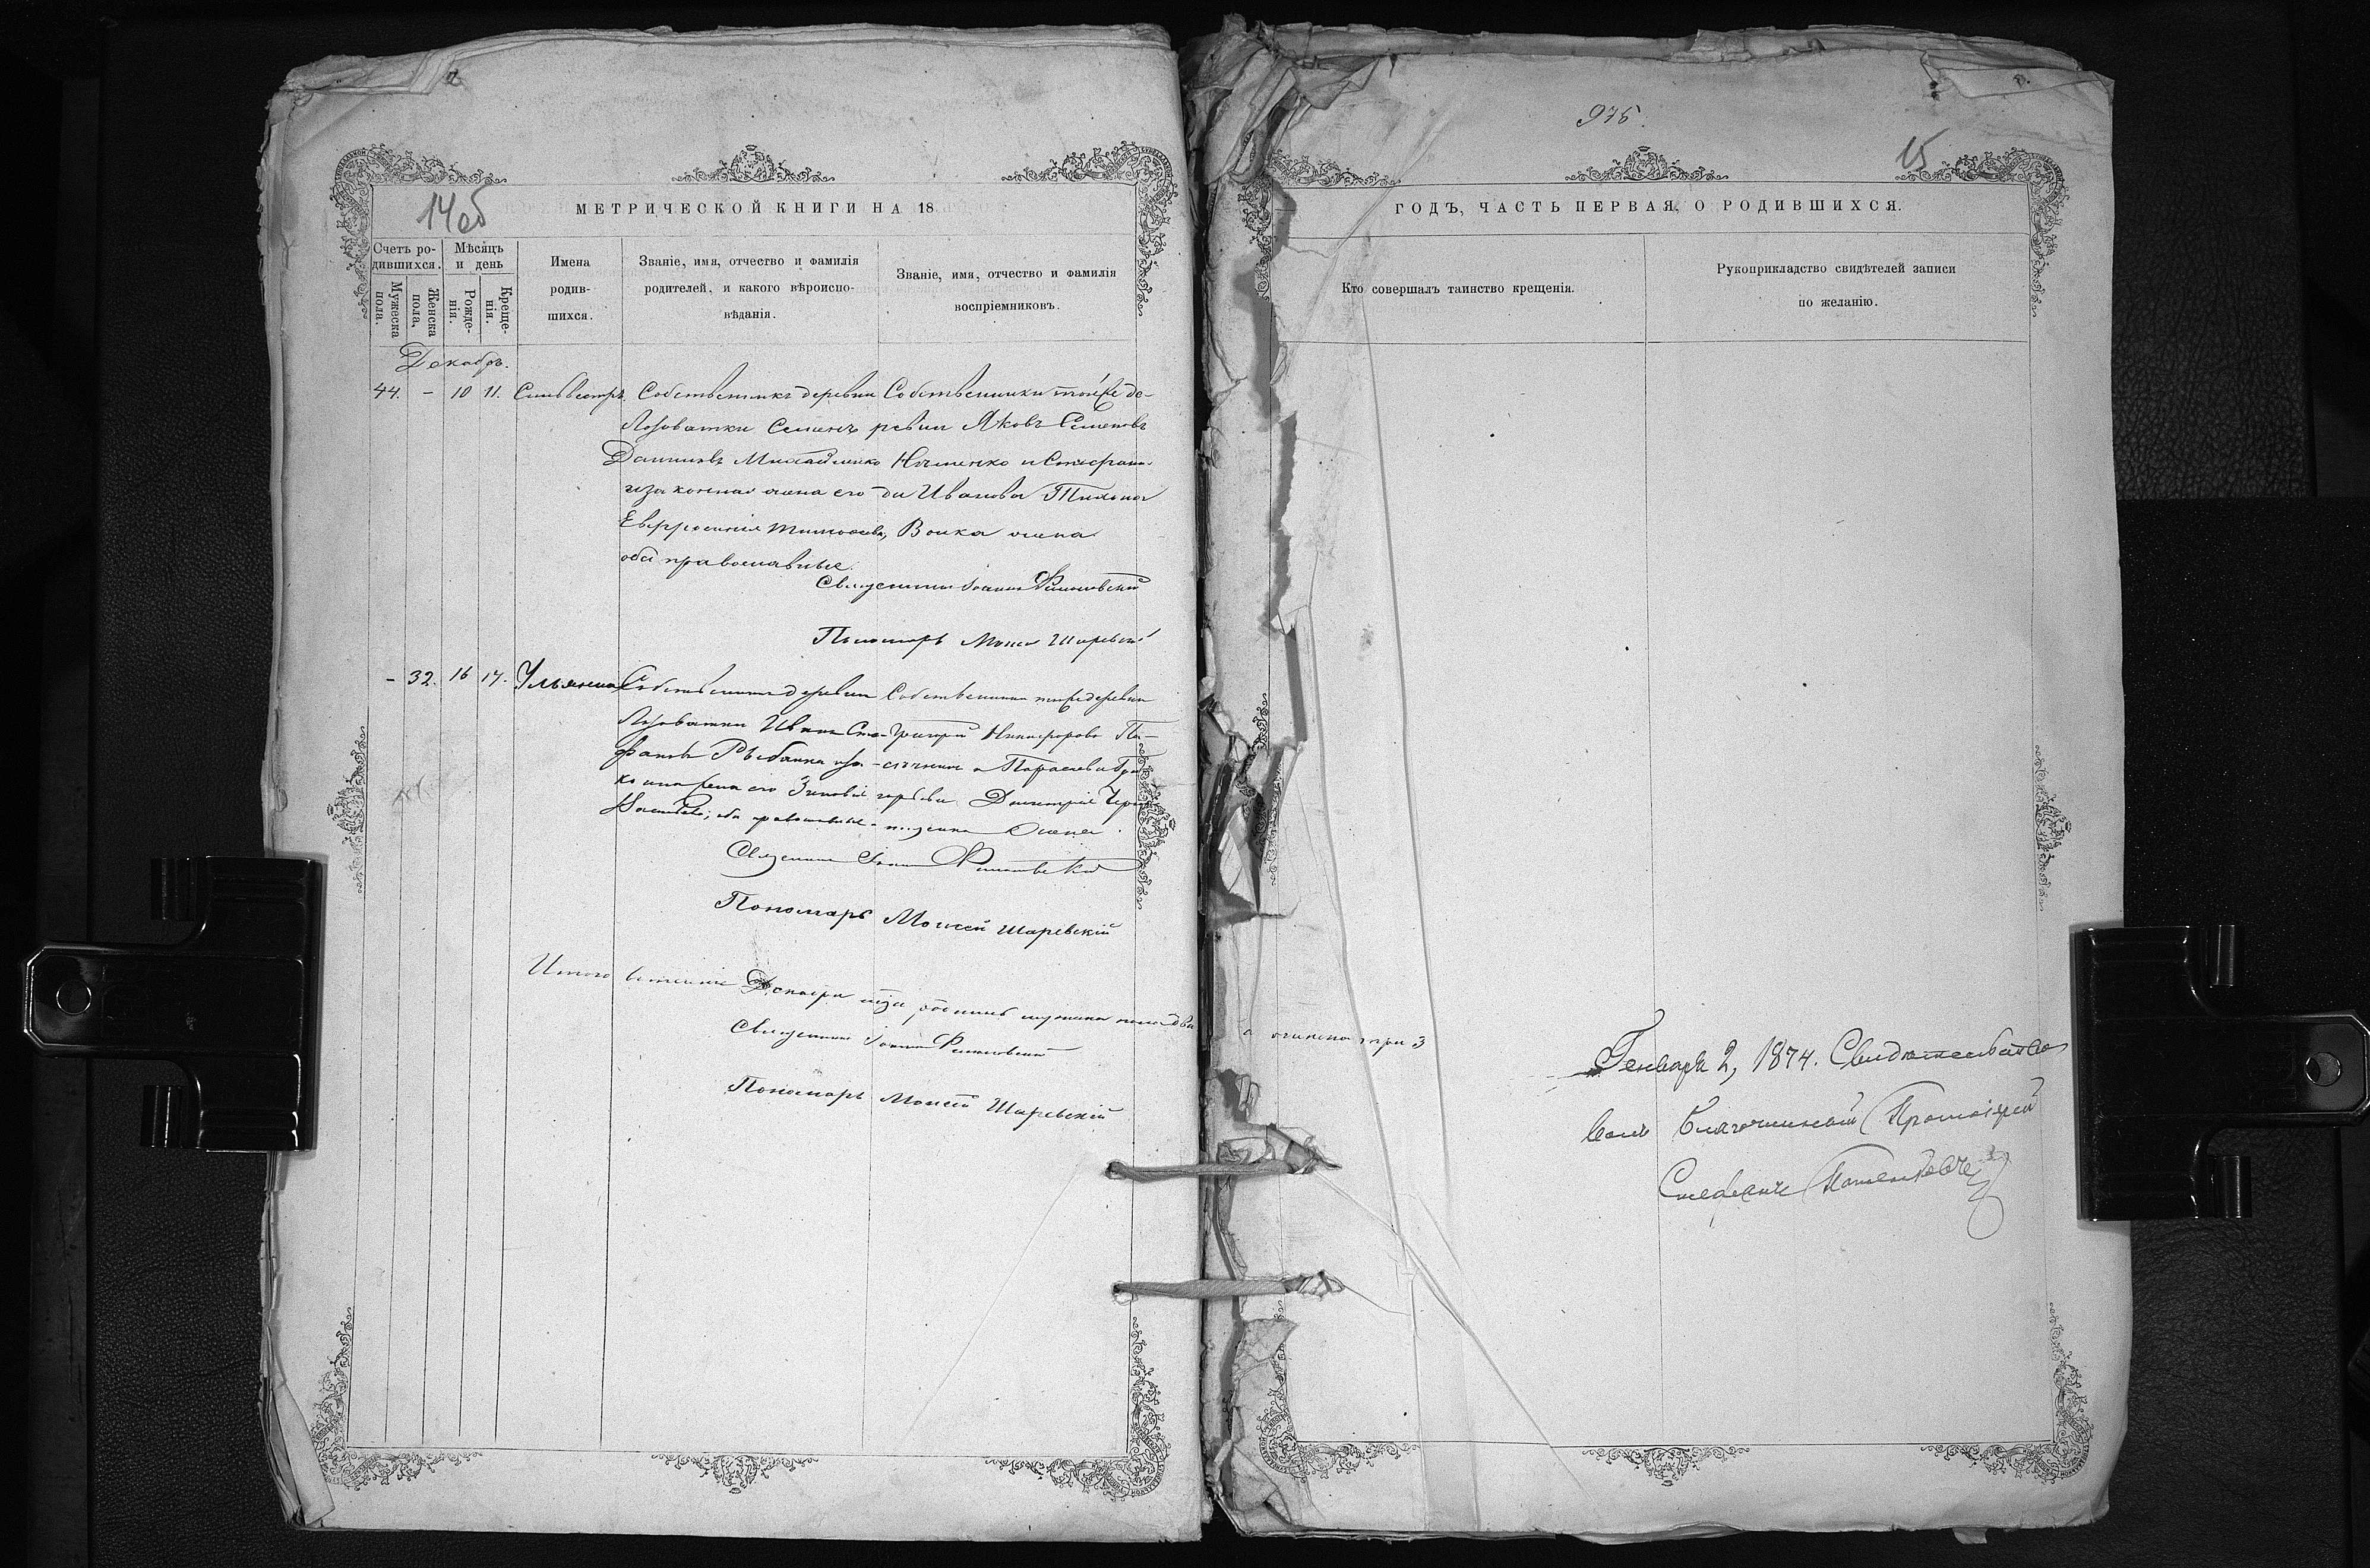 14об
МЕТРИЧЕСКОЙ КНИГИ НА 18
Счетъ ро-
дившихся.
Мужеска
пола.
Женска
пола.
Мѣсяцъ
и день
Рожде-
нія.
Креще-
нія.
Имена
родив-
шихся.
Званіе, имя, отчество и фамилія
родителей, и какого вѣроиспо-
вѣданія.
Званіе, имя, отчество и фамилія
воспріемниковъ.
Декабрь.
44. - 10 11. Сильвестръ.
Собственникъ деревни
Лозоватки Семенъ
Даниловъ Михайленко
и законная жена его
Евфросинія Тимоѳеева,
оба православные.
Собственники той же де-
ревни Яковъ Семеновъ
и Стефани-
да Иванова
жена
Священникъ Іоаннъ
Пономарь Моисей Шаревскій
- 32. 16 17. Ульяна
Собственникъ деревни
Лозоватки Иванъ Сте-
фановъ Рыбалка и за-
конная жена его Зиновія
оба православные
Собственники той же деревни
Григорій Никифоровъ Па-
сѣчникъ и Параскева
жена
Священникъ Іоаннъ
Пономарь Моисей Шаревскій
Итого въ теченіе Декабря мца родилось мужска пола два
Священникъ Іоаннъ
Пономарь Моисей Шаревскій
975.
15
ГОДЪ, ЧАСТЬ ПЕРВАЯ, О РОДИВШИХСЯ.
Кто совершалъ таинство крещенія.
Рукоприкладство свидѣтелей записи
по желанію.
а женска три 3
Генваря 2, 1874. Свидѣтельство
валъ Благочинный Протоіерей
Стефанъ